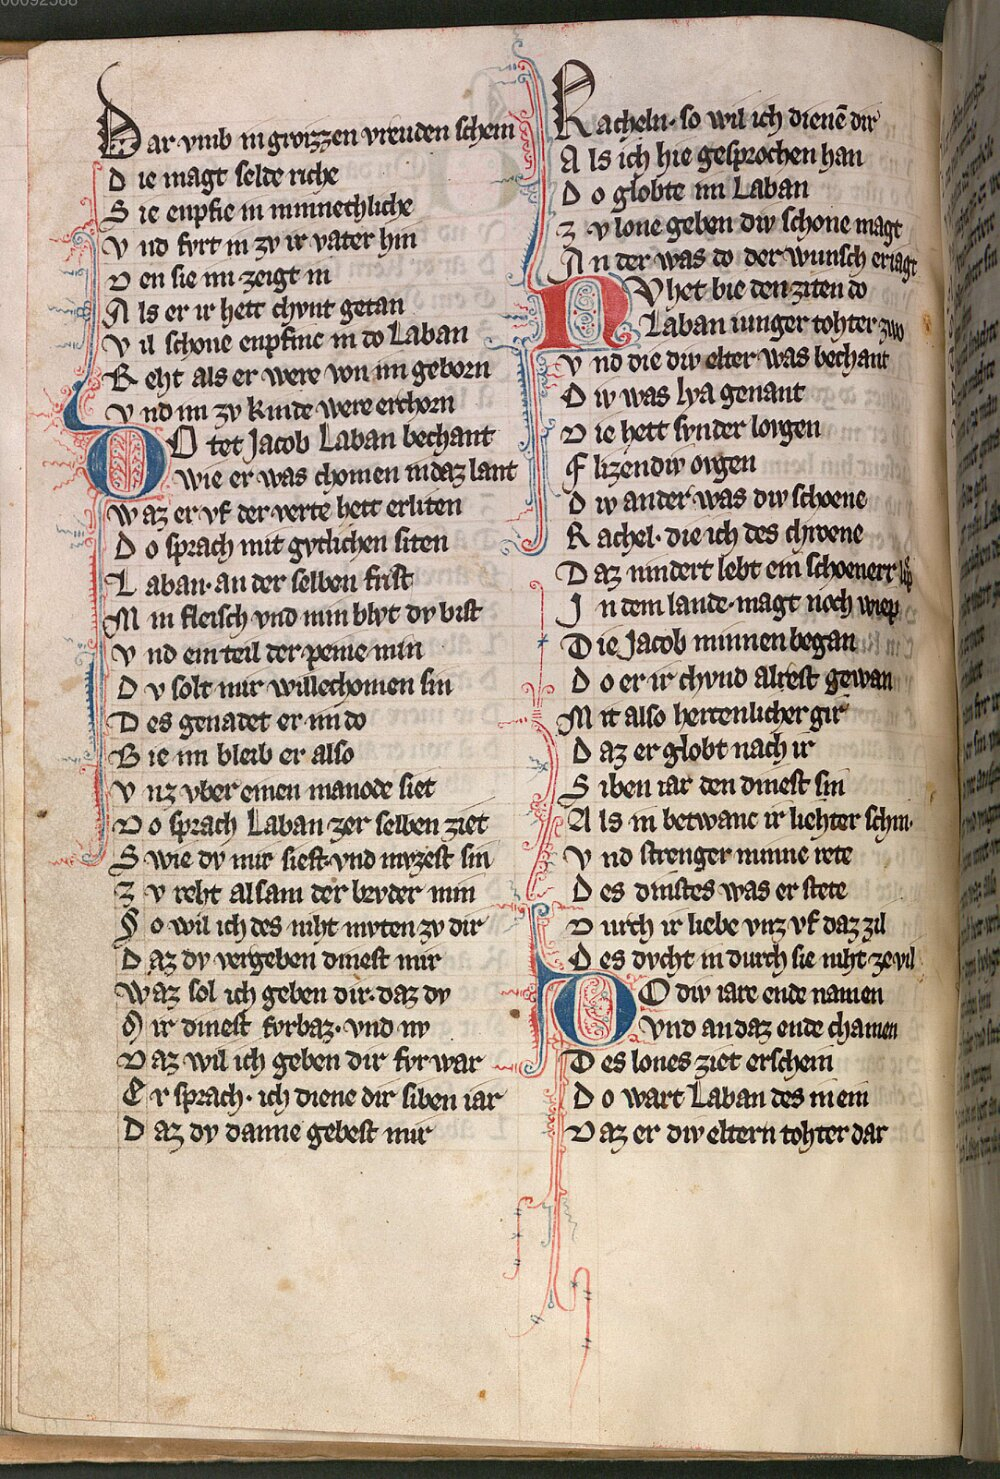 00092588
Dar vmb in grozzen vreuden schein
Die magt selde riche
Sie enpfie in minnechliche
Vnd fvrt in zv ir vater hin
Den sie im zeigt in
Als er ir hett chvnt getan
Vil schone enpfinc in do Laban
Reht als er were von im geborn
Vnd im zv kinde were erchorn
Do tet Jacob Laban bechant
wie er was chomen in daz lant
Waz er vf der verte hett erliten
Do sprach mit gvtlichen siten
Laban· an der selben frist
Min fleisch vnd min blvt dv bist
Vnd ein teil der peine min
Dv solt mir willechomen sin
Des genadet er im do
Bie im bleib er also
Vnz vber einen manode siet
Do sprach Laban zer selben ziet
Swie dv mir siest· vnd mvzest sin
Zv reht alsam der brvder min
So wil ich des niht mvten zv dir
Daz dv vergeben dinest mir
Waz sol ich geben dir· daz dv
Mir dinest fvrbaz· vnd nv
Daz wil ich geben dir fvr war
Er sprach· ich diene dir siben iar
Daz dv danne gebest mir
Racheln· so wil ich dienē dir
Als ich hie gesprochen han
Do globte im Laban
Zv lone geben div schone magt
An der was do der wunsch eriagt
Nv het bie den ziten do
Laban iunger tohter zwo
Vnd die div elter was bechant
Div was lya genant
Die hett svnder lovgen
Flizendiv ovgen
Div ander was div schoene
Rachel· die ich des chroene
Daz nindert lebt ein schoenerr lip
In dem lande· magt noch wiep
Die Jacob minnen began
Do er ir chvnd alrest gewan
Mit also hertenlicher gir
Daz er globt nach ir
Siben iar den dinest sin
Als in betwanc ir liehter schin·
Vnd strenger minne rete
Des dinstes was er stete
Durch ir liebe vnz vf daz zil
Des dvcht in durch sie niht ze vil
Do div iare ende namen
vnd an daz ende chamen
Des lones ziet erschein
Do wart Laban des in ein
Daz er div eltern tohter dar